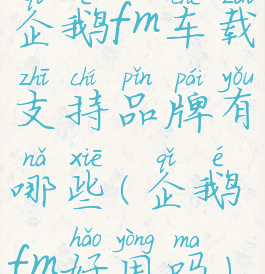 企鹅fm车载
zhī chí pǐn pái yǒu
支持品牌有
nǎ xiē qǐ é
哪些(企鹅
hǎo yòng ma
fm好用吗)